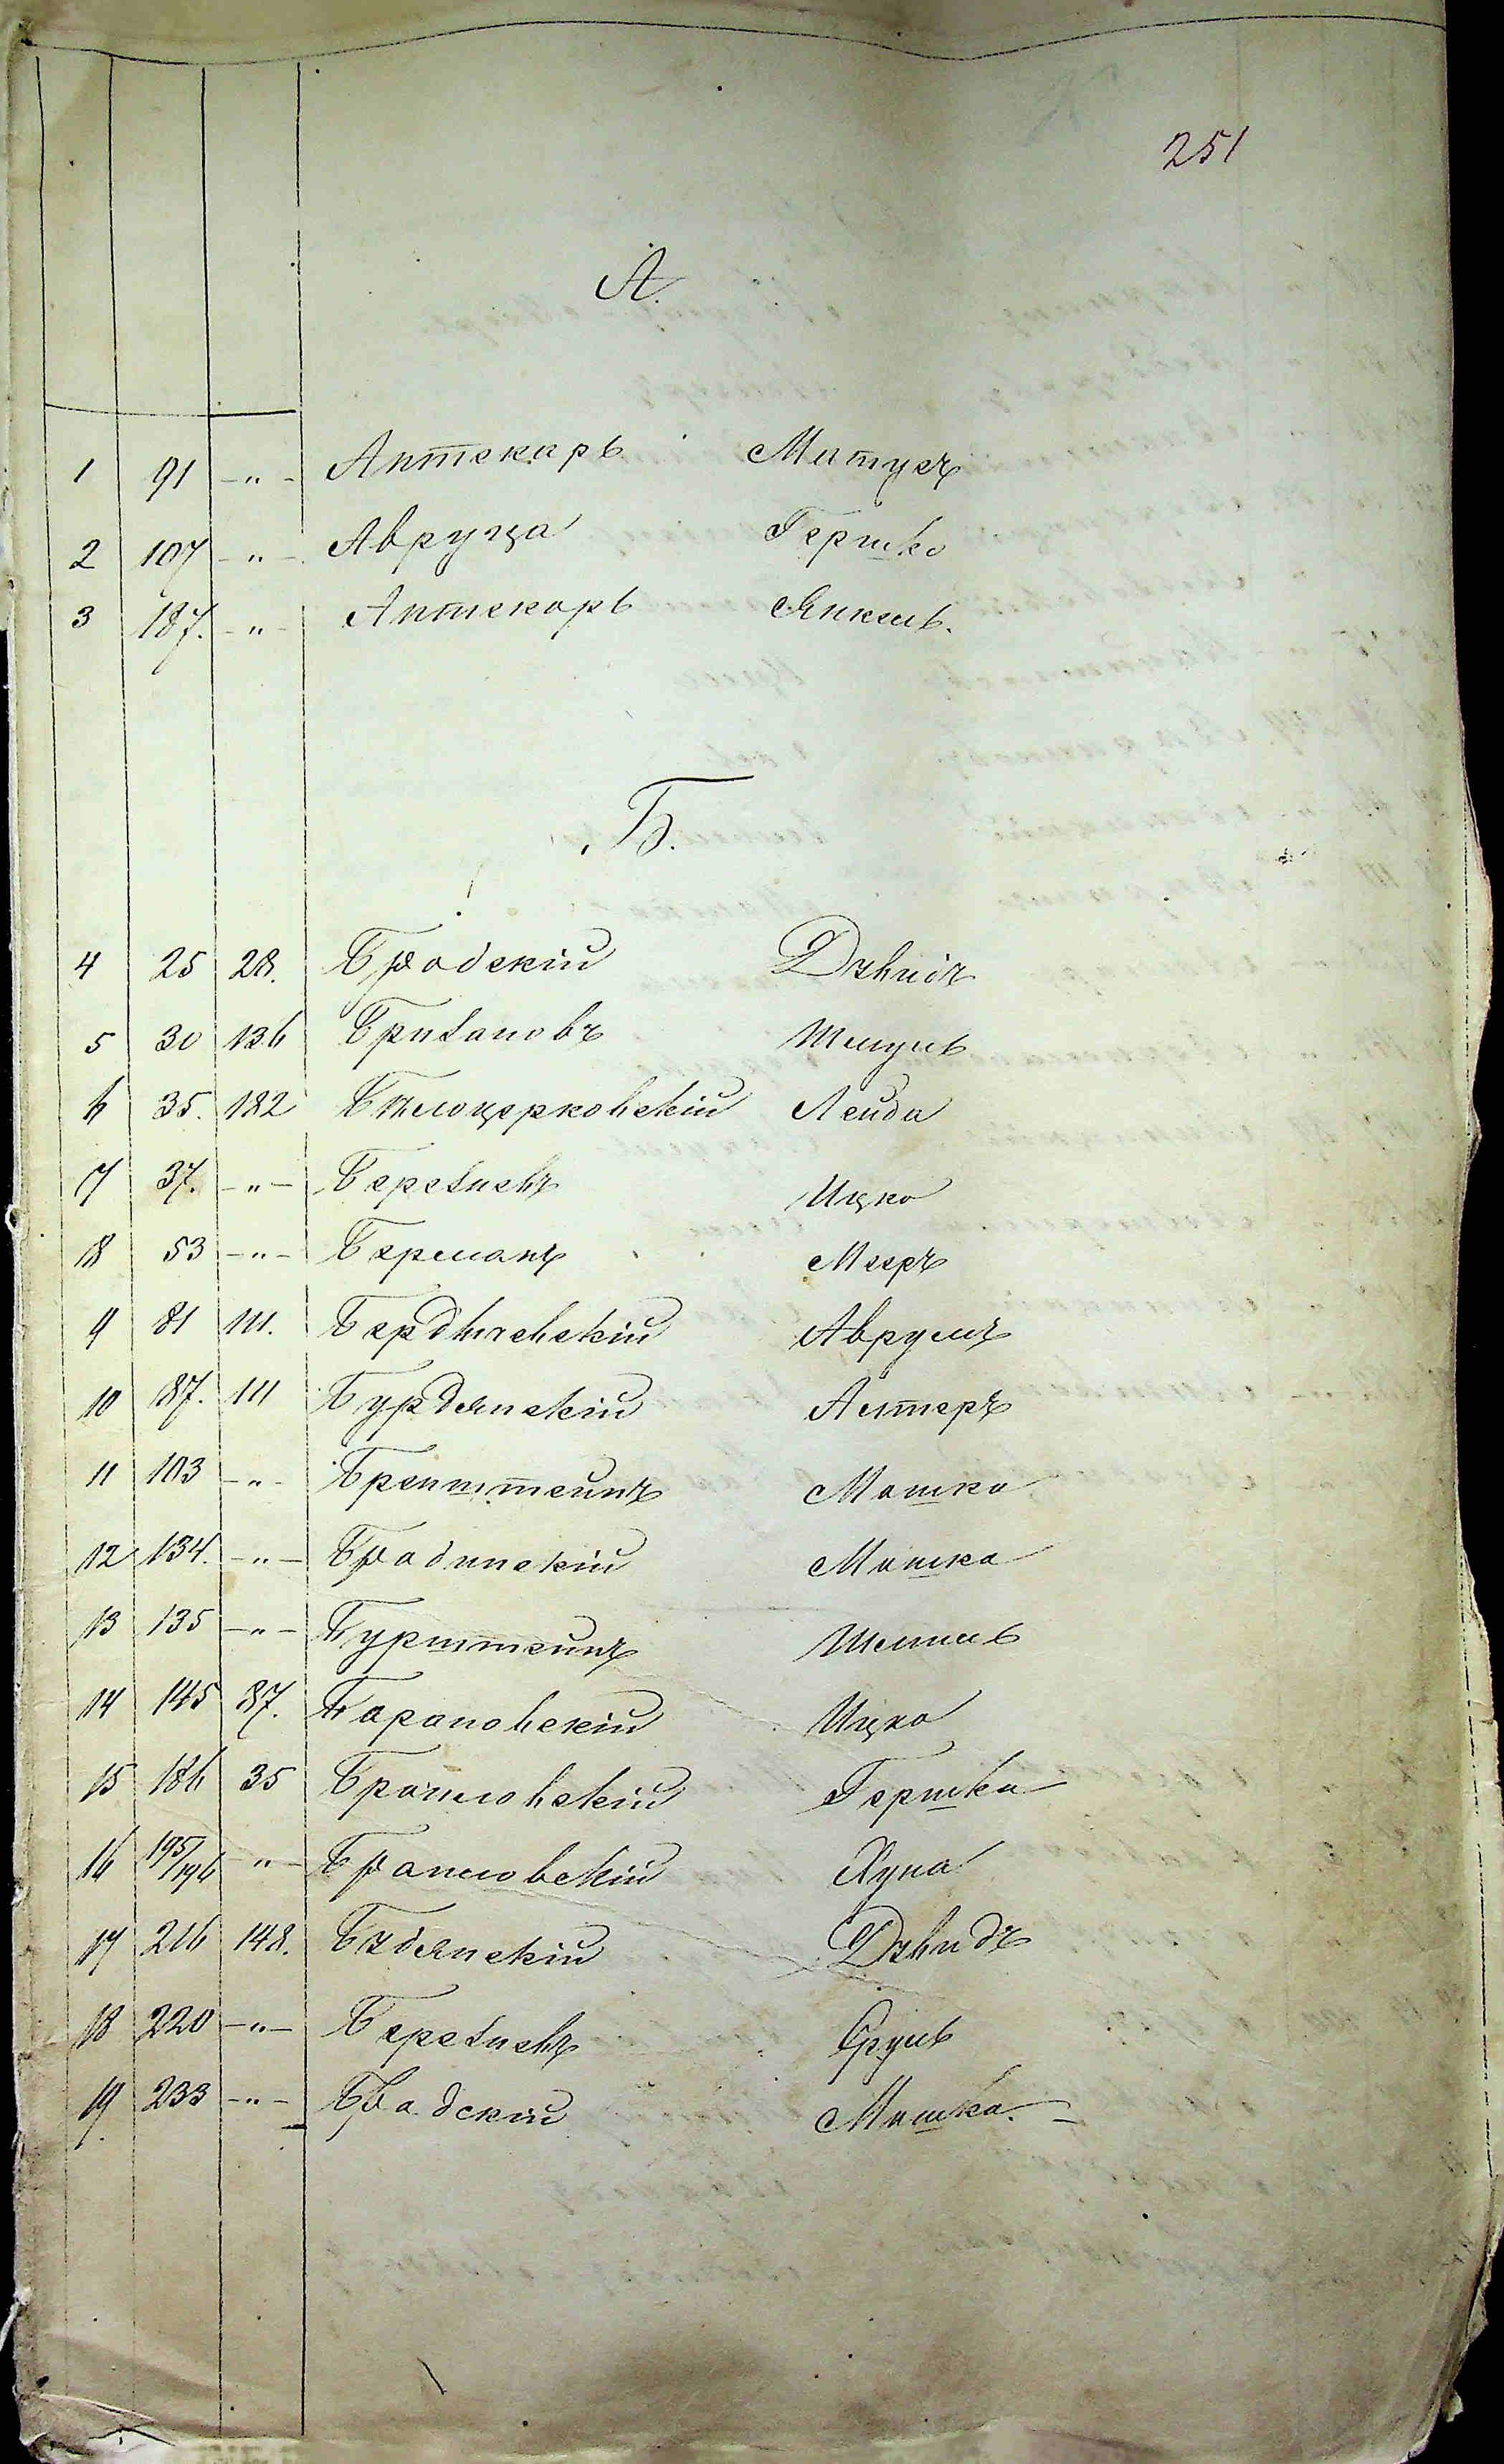 251
А.
1 91 -"- Аптекарь Матусъ
2 107 -"- Авруца Гершко
3 187. -"- Аптекарь Янкель.
Б.
4 25 28. Бродскій Давидъ
5 30 136 Бризановъ Шмуль
6 35. 182 Бѣлоцерковскій Лейба
7 37. -"- Березневъ Ицко
8 53 -"- Берманъ Мееръ
9 81 111. Бердичевскій Аврумъ
10 87. 111 Бурдянскій Алтеръ
11 103 -"- Бренштейнъ Мошко
12 134. -"- Бродинскій Мошко
13 135 -"- Бурштейнъ Шепшель
14 145 87. Барановскій Ицко
15 186 35 Браиловскій Гершко
16 195/196 -"- Браиловскій Хуна
17 216 148. Бодянскій Давидъ
18 220 -"- Березневъ Сруль
19. 233 -"- Бродскій Мошко.